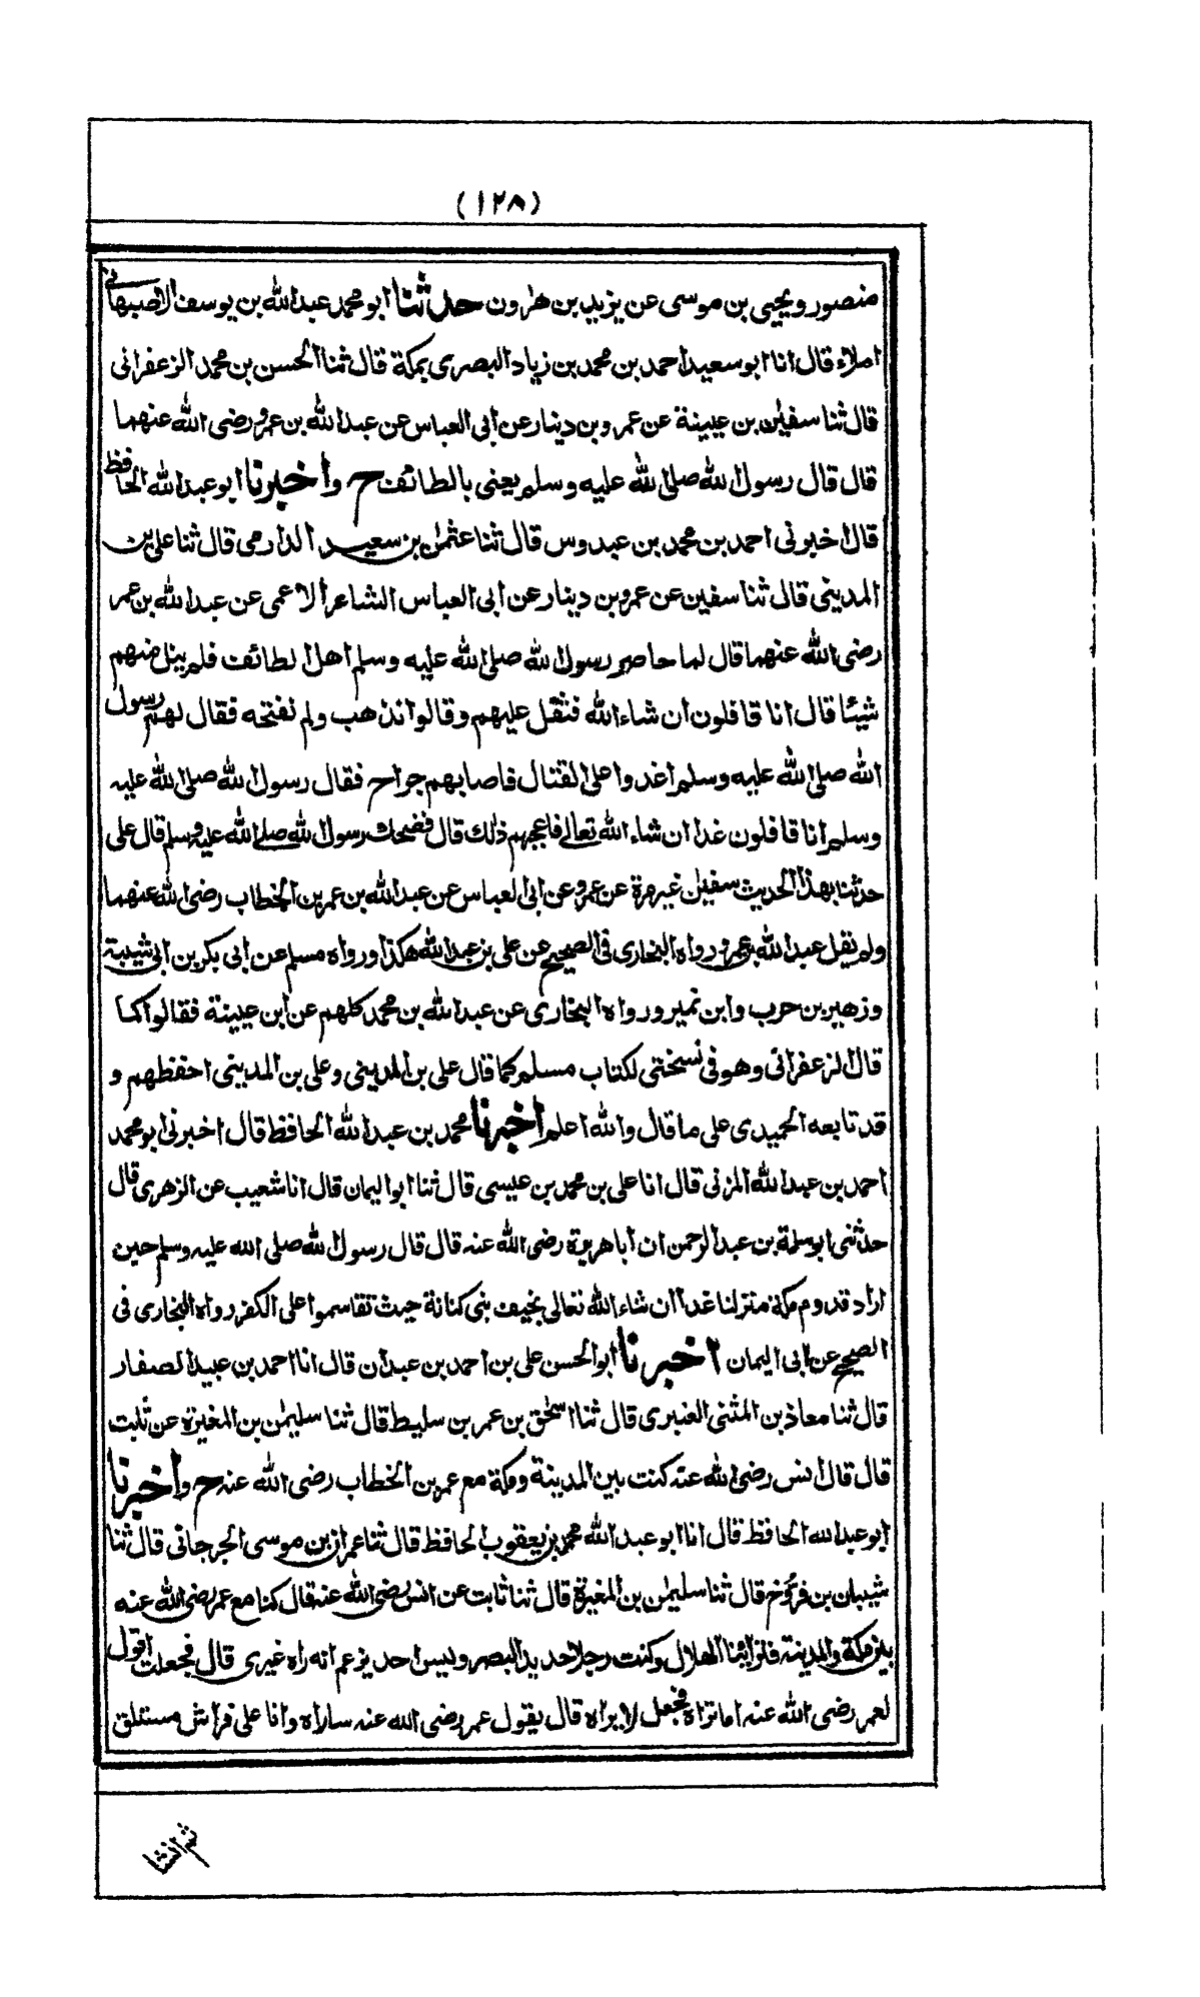 (١٢٨)
منصور ويحيى بن موسى عن يزيد بن هٰرون حدثنا ابو محمد عبد الله بن يوسف الاصبهانى
املاء قال انا ابو سعيد احمد بن محمد بن زياد البصرى بمكة قال ثنا الحسن بن محمد الزعفرانى
قال ثنا سفيٰن بن عيينة عن عمرو بن دينار عن ابى العباس عن عبد الله بن عمرو رضى الله عنهما
قال قال رسول الله صلى الله عليه وسلم يعنى بالطائف ح واخبرنا ابو عبد الله الحافظ
قال اخبرنى احمد بن محمد بن عبدوس قال ثنا عثمٰن بن سعيد الدارمى قال ثنا على بن
المدينى قال ثنا سفين عن عمرو بن دينار عن ابى العباس الشاعر الاعمى عن عبد الله بن عمر
رضى الله عنهما قال لما حاصر رسول الله صلى الله عليه وسلم اهل الطائف فلم ينل منهم
شيئا قال انا قافلون ان شاء الله فثقل عليهم وقالوا نذهب ولم نفتحه فقال لهم رسول
الله صلى الله عليه وسلم اغدوا على القتال فاصابهم جراح فقال رسول الله صلى الله عليه
وسلم انا قافلون غدا ان شاء الله تعالى فاعجبهم ذلك قال فضحك رسول الله صلى الله عليه وسلم قال على
حدثنا بهذا الحديث سفيٰن غير مرة عن عمرو عن ابى العباس عن عبد الله بن عمر بن الخطاب رضى الله عنهما
ولم يقل عبد الله بن عمرو رواه البخارى فى الصحيح عن على بن عبد الله هكذا ورواه مسلم عن ابى بكر بن ابى شيبة
وزهير بن حرب وابن نمير ورواه البخارى عن عبد الله بن محمد كلهم عن ابن عيينة فقالوا كما
قال الزعفرانى وهو فى نسختى لكتاب مسلم كما قال على بن المدينى وعلى بن المدينى احفظهم و
قد تابعه الحميدى على ما قال والله اعلم اخبرنا محمد بن عبد الله الحافظ قال اخبرنى ابو محمد
احمد بن عبد الله المزنى قال انا على بن محمد بن عيسى قال ثنا ابو اليمان قال انا شعيب عن الزهرى قال
حدثنى ابو سلمة بن عبد الرحمن ان ابا هريرة رضى الله عنه قال قال رسول الله صلى الله عليه وسلم حين
اراد قدوم مكة منزلنا غدا ان شاء الله تعالى بخيف بنى كنانة حيث تقاسموا على الكفر رواه البخارى فى
الصحيح عن ابى اليمان اخبرنا ابو الحسن على بن احمد بن عبدان قال انا احمد بن عبيد الصفار
قال ثنا معاذ بن المثنى العنبرى قال ثنا اسحٰق بن عمر بن سليط قال ثنا سليمٰن بن المغيرة عن ثابت
قال قال انس رضى الله عنه كنت بين المدينة ومكة مع عمر بن الخطاب رضى الله عنه ح واخبرنا
ابو عبد الله الحافظ قال انا ابو عبد الله محمد بن يعقوب الحافظ قال ثنا عمران بن موسى الجرجانى قال ثنا
شيبان بن فروخ قال ثنا سليمٰن بن المغيرة قال ثنا ثابت عن انس رضى الله عنه قال كنا مع عمر رضى الله عنه
بين مكة والمدينة فتراينا الهلال وكنت رجلا حديد البصر وليس احد يزعم انه راه غيرى قال فجعلت اقول
لعمر رضى الله عنه اما تراه فجعل لا يراه قال يقول عمر رضى الله عنه ساراه وانا على فراش مستلق
ثم انشا